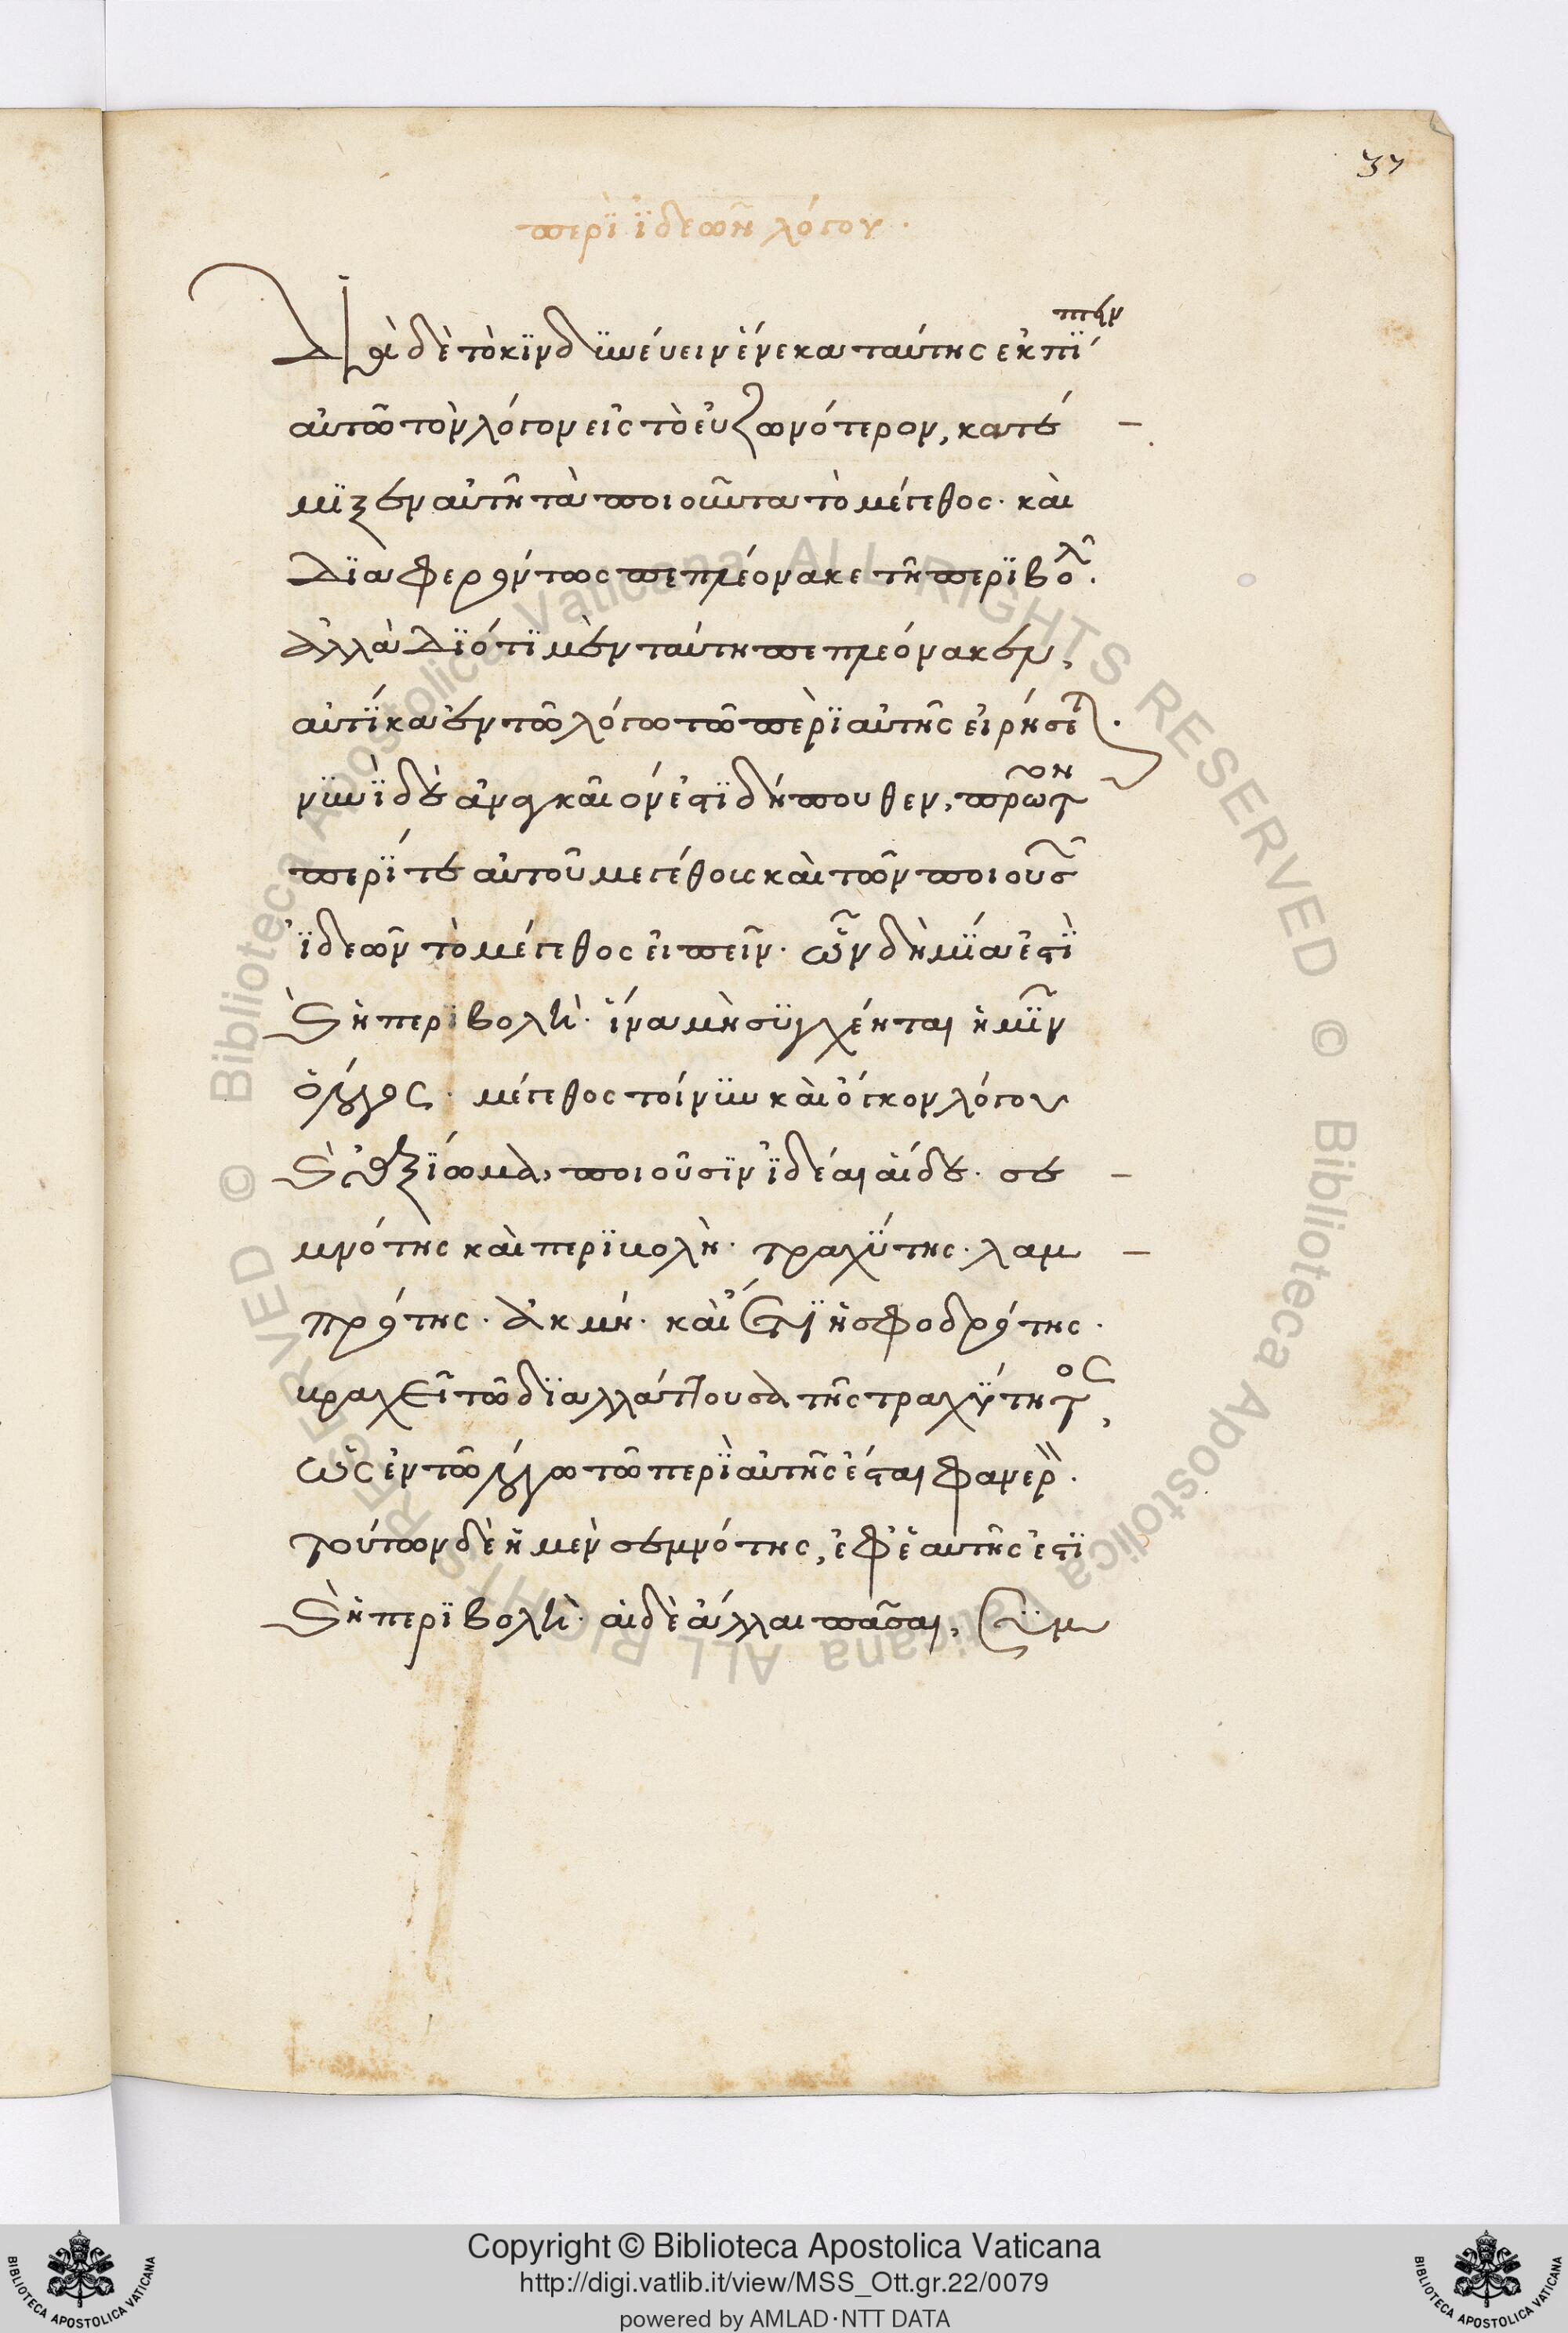 37
περὶ ἰδεῶν λόγου.
Διὰ δὲ τὸ κινδυνεύειν ἕνεκα ταύτης ἐκπίπτειν
αὐτῶ τὸν λόγον εἰς τὸ εὐζωνότερον, κατέ
μιξεν αὐτῆ τὰ ποιοῦντα τὸ μέγεθος· καὶ
διαφερόντως πεπλεόνακε τῆ περιβολῆ.
ἀλλὰ διότι μὲν ταύτη πεπλεόνακεν,
αὐτίκα ἐν τῶ λόγω τῶ περὶ αὐτῆς εἰρήσεται.
νυνὶ δὲ ἀναγκαῖον ἐστὶ δήπουθεν, πρῶτον
περί τε αὐτοῦ μεγέθους καὶ τῶν ποιουσῶν
ἰδεῶν τὸ μέγεθος εἰπεῖν· ὧν δὴ μία ἐστὶ
καὶ ἡ περιβολή· ἵνα μὴ συγχέηται ἡμῖν
ὁ λόγος· μέγεθος τοίνυν καὶ ὄγκον λόγου
καὶ ἀξίωμα, ποιοῦσιν ἰδέαι αἵδε· σε
μνότης καὶ περιβολὴ· τραχύτης· λαμ
πρότης· ἀκμή· καὶ ἔτι ἡ σφοδρότης·
βραχεῖ τῶ διαλλάττουσα τῆς τραχύτητος,
ὡς ἐν τῶ λόγω τῶ περὶ αὐτῆς ἔσται φανερὸν.
τούτων δὲ ἡ μὲν σεμνότης, ἐφ' ἑαυτῆς ἐστὶ
καὶ ἡ περιβολή· αἱ δὲ ἄλλαι πᾶσαι, συμ
Copyright © Biblioteca Apostolica Vaticana
http://digi.vatlib.it/view/MSS_Ott.gr.22/0079
powered by AMLAD·NTT DATA
BIBLIOTECA APOSTOLICA VATICANA
BIBLIOTECA APOSTOLICA VATICANA
© Biblioteca Apostolica Vaticana ALL RIGHTS RESERVED © Biblioteca Apostolica Vaticana ALL RIGHTS RESERVED